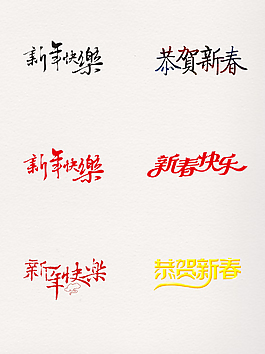 新年快樂
恭賀新春
新年快樂
新春快乐
新年快樂
恭贺新春